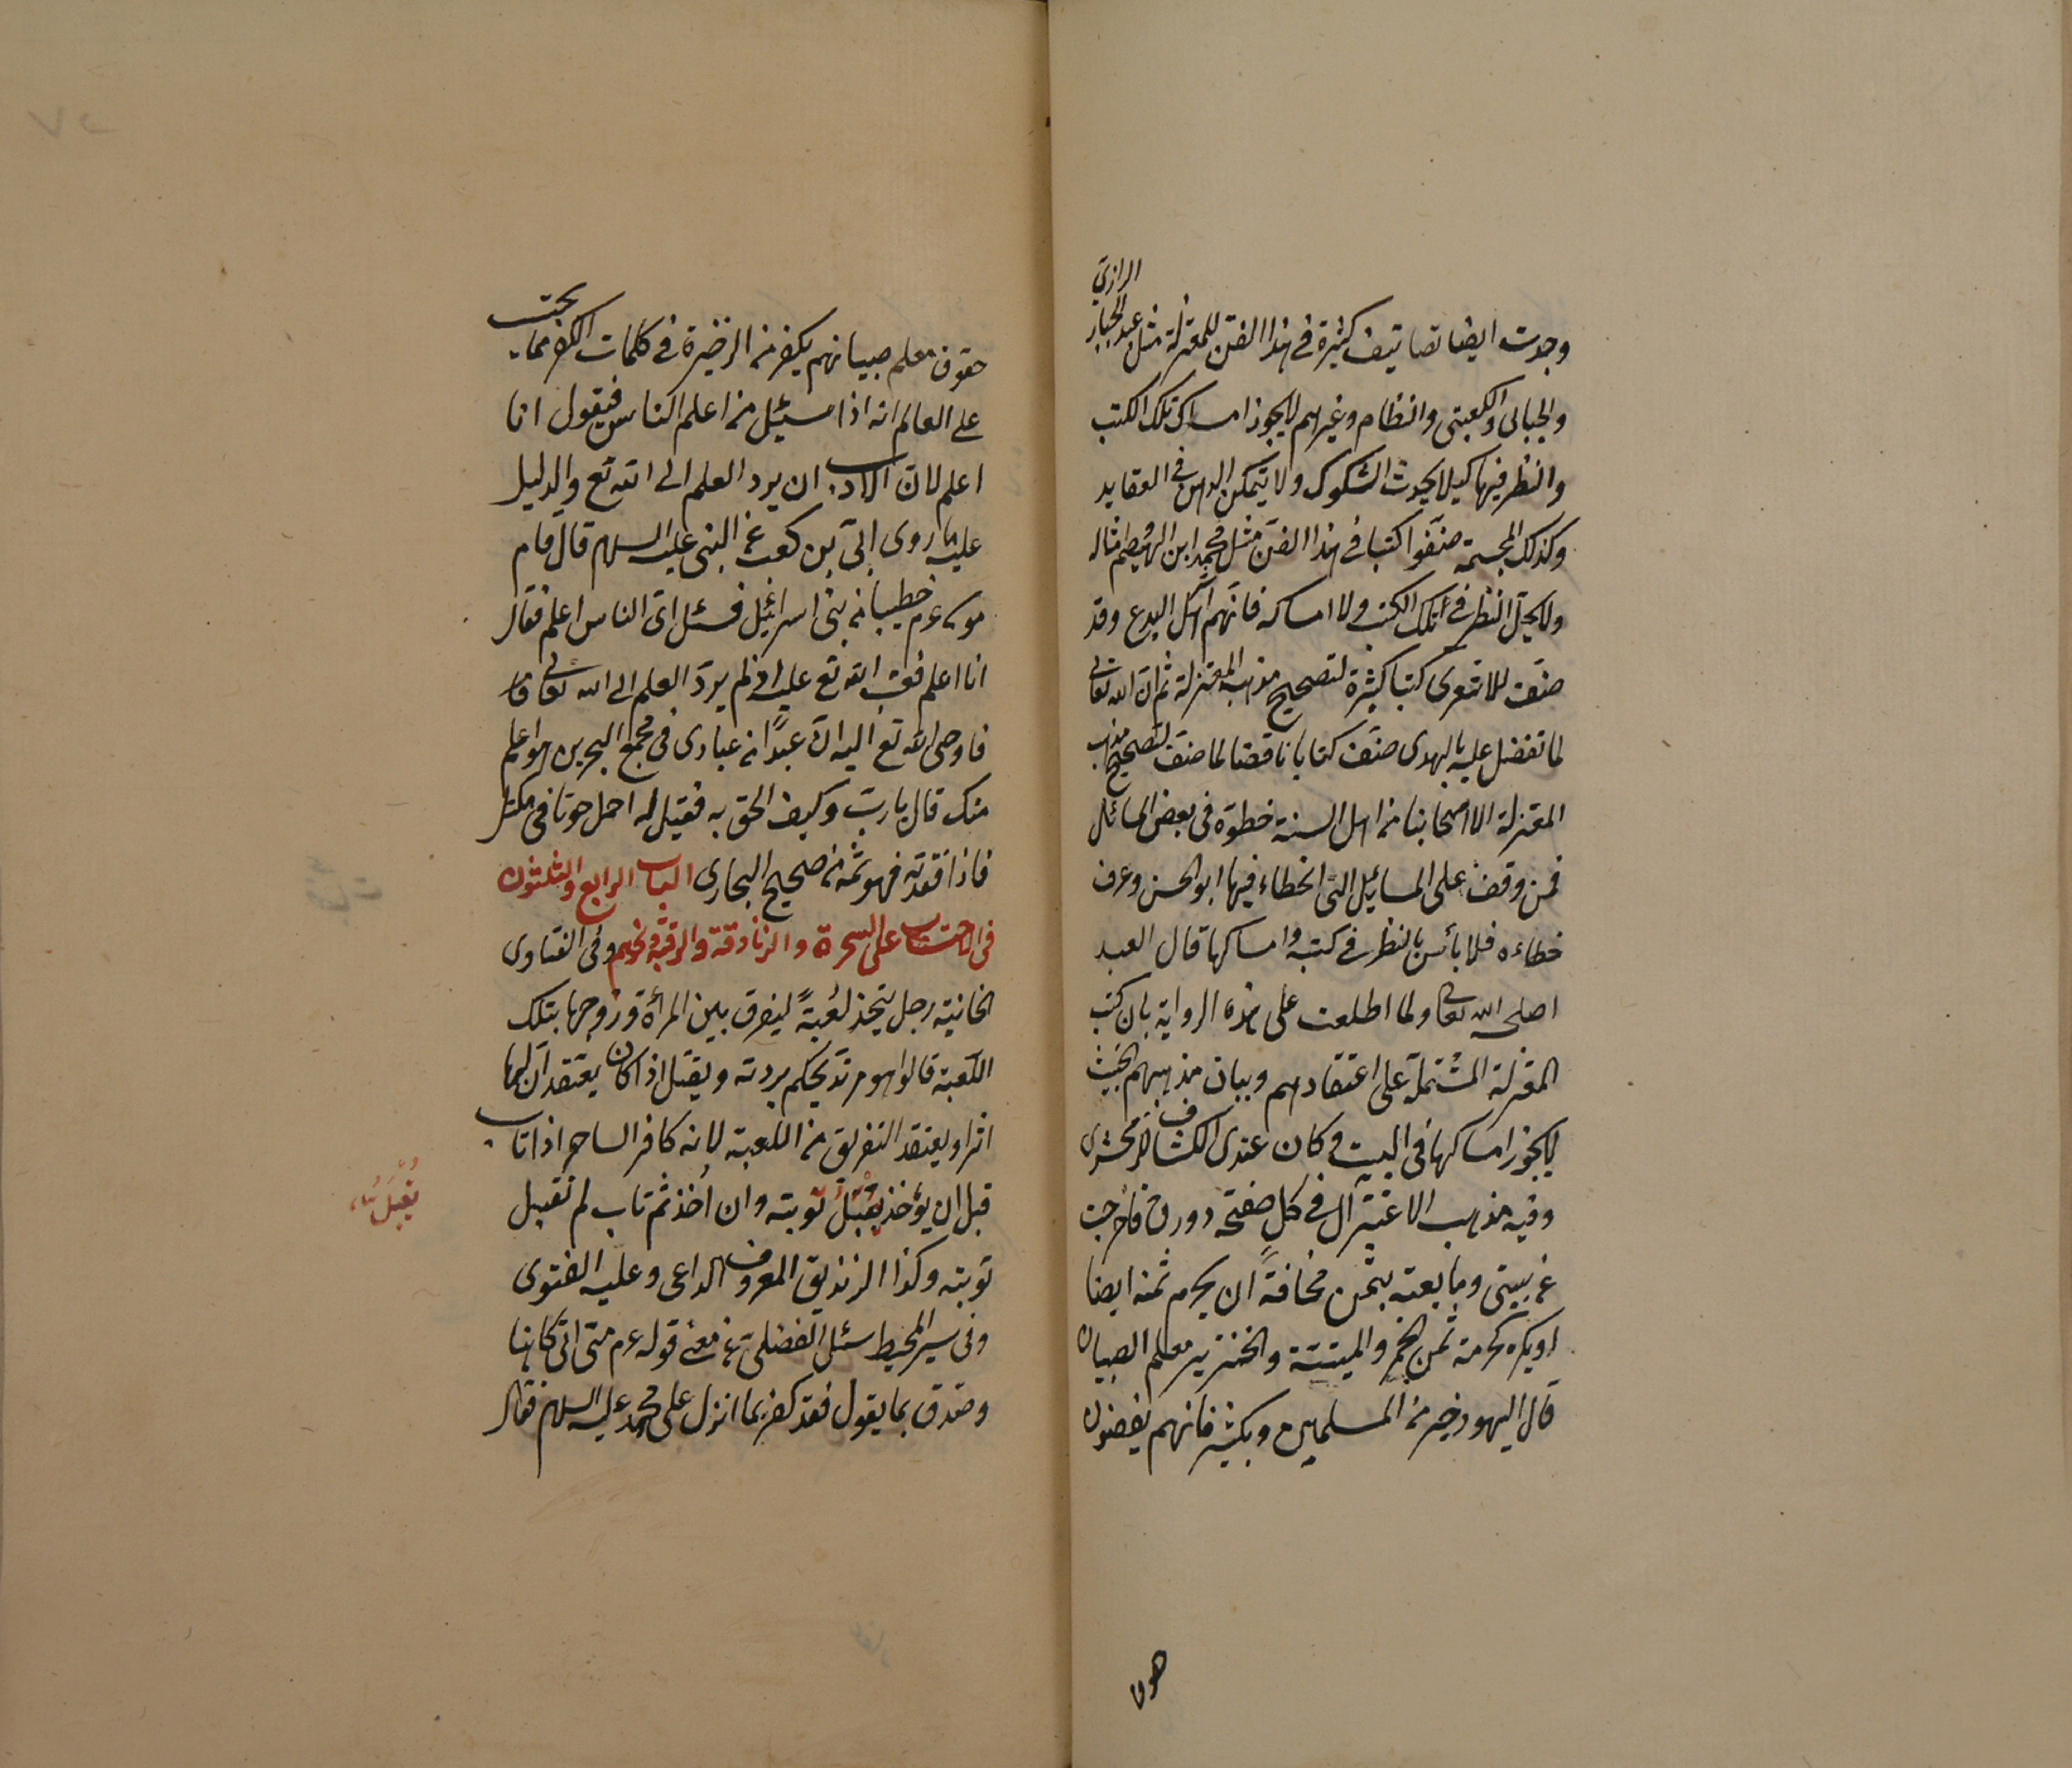 وجدت ايضا تصانيف كثيرة فى هذا الفن للمعتزلة مثل عبد الجبار الرازى
والجبائى والكعبى والنظام وغيرهم لا يجوز امساك تلك الكتب
والنظر فيها كيلا يحدث الشكوك ولا يتمكن الوهن فى العقايد
وكذلك المجسمة صنفوا كتبا فى هذا الفن مثل محمد ابن الهيصم امثاله
ولا يحل النظر فى تلك الكتب ولا امساكه فانهم اهل البدع وقد
صنف للاشعرى كتبا كثيرة لتصحيح مذهب المعتزلة ثم ان الله تعالى
لما تفضل عليه بالهدى صنف كتابا ناقضا لما صنف لتصحيح مذهب
المعتزلة الا اصحابنا من اهل السنة خطوه فى بعض المسائل
فمن وقف على المسائل التى اخطاء فيها ابو الحسن وعرف
خطاءه فلا بأس بالنظر فى كتبه وامساكها قال العبد
اصلحه الله تعالى ولما اطلعت على هذه الرواية بان كتب
المعتزلة المشتملة على اعتقادهم وبيان مذهبهم الخبيث
لا يجوز امساكها فى البيت وكان عندى الكشاف للزمخشرى
وفيه مذهب الاعتزال فى كل صفحة وورق فاخرجت
عن بيتى وما بعته بثمن مخافة ان يحرم ثمنه ايضا
او يكره كحرمة ثمن الخمر والميتة والخنزير معلم الصبيان
قال اليهود خير من المسلمين وبكثير فانهم يقضون
حقوق
حقوق معلم صبيانهم يكفر من الذخيرة فى كلمات الكفر مما يجب
على العالم انه اذا سئل من اعلم الناس فيقول انا
اعلم لان الادب ان يرد العلم الى الله تع والدليل
عليه ما روى ابىّ بن كعب عن النبى عليه السلام قال قام
موسى عم خطيبا فى بنى اسرائيل فسئل اى الناس اعلم فقال
انا اعلم فعتب الله تع عليه اذ لم يرد العلم الى الله تعالى قال
فاوحى الله تع اليه ان عبدًا من عبادى فى مجمع البحرين هو اعلم
منك قال يا رب وكيف الحق به فقيل له احمل حوتا فى مكتل
فاذا فقدته فهو ثمه من صحيح البخارى الباب الرابع والثلثون
فى الاحتساب على السحرة والزنادقة والرقية ونحوهم وفى الفتاوى
الخانية رجل يتخذ لعبةً ليفرق بين المرأة وزوجها بتلك
اللعبة قالوا هو مرتد يحكم بردته ويقتل اذا كان يعتقد ان لها
اثرا ويعتقد التفريق من اللعبة لانه كافر الساحر اذا تاب
قبل ان يؤخذ يقبل توبته وان اُخذ ثم تاب لم تقبل
توبته وكذا الزنديق المعروف الداعى وعليه الفتوى
وفى سير المحيط سئل الفضلى عن معنى قوله عم متى اتى كاهنا
وصدق بما يقول فقد كفر بما انزل على محمد عليه السلام فقال
تُقبَلُ